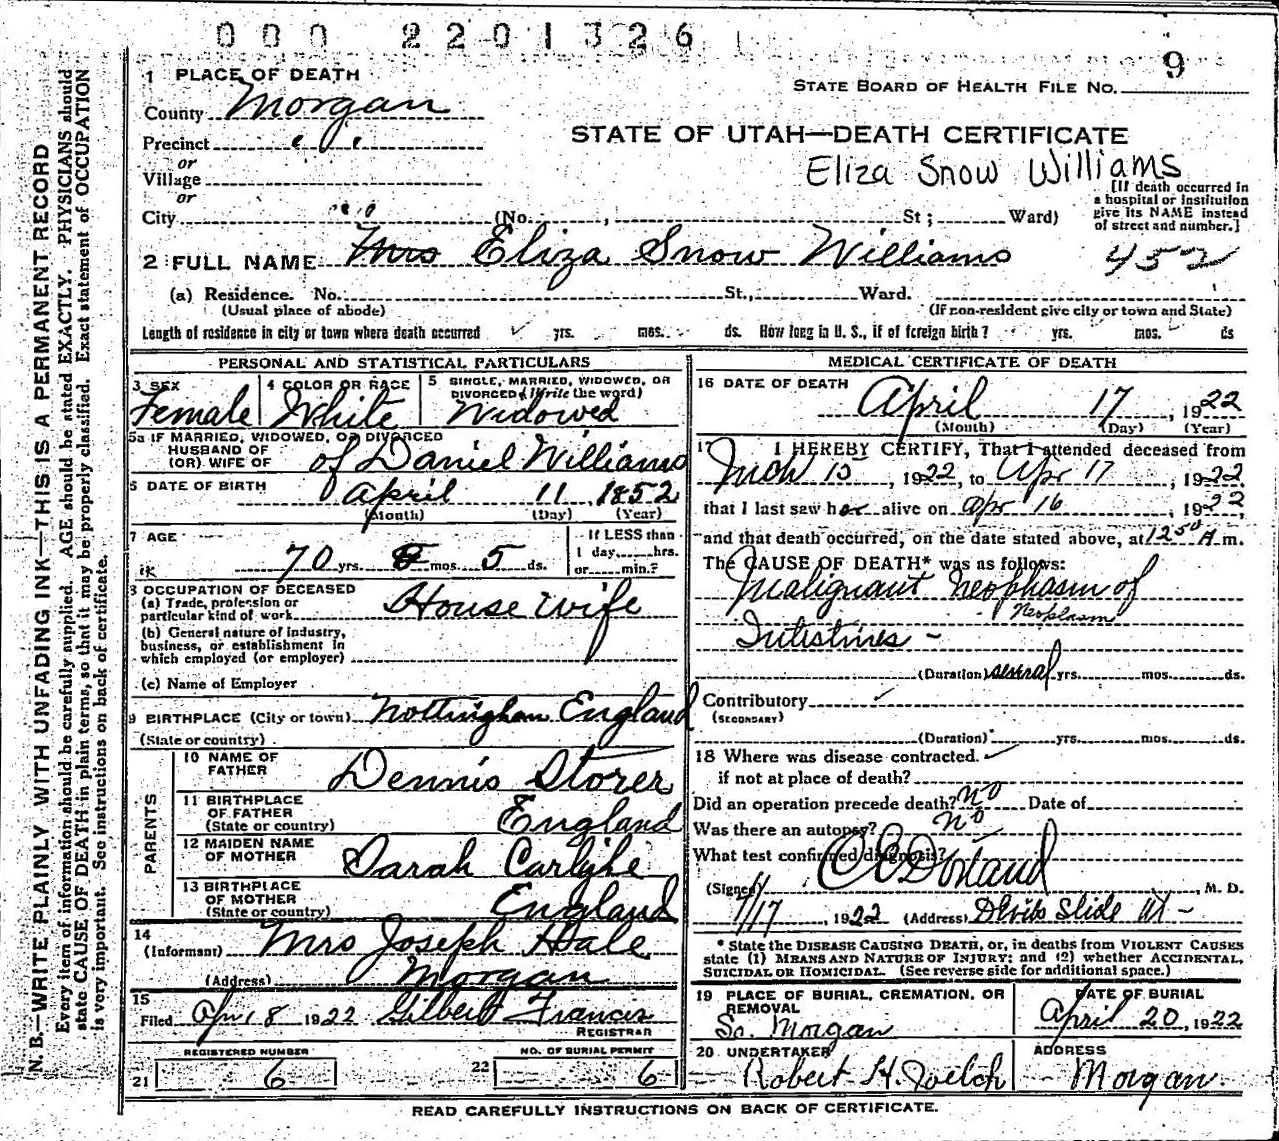 000 2201326
9
1 PLACE OF DEATH
STATE BOARD OF HEALTH FILE No.
County Morgan
STATE OF UTAH—DEATH CERTIFICATE
Precinct " "
or
Village
Eliza Snow Williams
or
[If death occurred in
a hospital or institution
give its NAME instead
of street and number.]
City " (No. , St; Ward)
2 FULL NAME Mrs Eliza Snow Williams
452
(a) Residence. No. St., Ward.
(Usual place of abode) (If non-resident give city or town and State)
Length of residence in city or town where death occurred yrs. mos. ds. How long in U. S., if of foreign birth? yrs. mos. ds
PERSONAL AND STATISTICAL PARTICULARS
3 SEX
Female
4 COLOR OR RACE
White
5 SINGLE, MARRIED, WIDOWED, OR
DIVORCED (Write the word)
Widowed
5a IF MARRIED, WIDOWED, OR DIVORCED
HUSBAND OF
(OR) WIFE OF of Daniel Williams
6 DATE OF BIRTH April 11 1852
(Month) (Day) (Year)
7 AGE
70 yrs. mos. 5 ds.
If LESS than
1 day, hrs.
or min.?
8 OCCUPATION OF DECEASED
(a) Trade, profession or
particular kind of work House wife
(b) General nature of industry,
business, or establishment in
which employed (or employer)
(c) Name of Employer
9 BIRTHPLACE (City or town) Nottingham England
(State or country)
PARENTS
10 NAME OF
FATHER Dennis Storer
11 BIRTHPLACE
OF FATHER
(State or country) England
12 MAIDEN NAME
OF MOTHER Sarah Carlighe
13 BIRTHPLACE
OF MOTHER
(State or country) England
14
(Informant) Mrs Joseph Hale
(Address) Morgan
15
Filed Apr 18 1922 Gilbert Francis
REGISTRAR
REGISTERED NUMBER
21 6
NO. OF BURIAL PERMIT
22 6
MEDICAL CERTIFICATE OF DEATH
16 DATE OF DEATH
April 17, 1922
(Month) (Day) (Year)
17 I HEREBY CERTIFY, That I attended deceased from
Mch 15, 1922, to Apr 17, 1922
that I last saw her alive on apr 16, 1922,
and that death occurred, on the date stated above, at 12 50 A m.
The CAUSE OF DEATH* was as follows:
Malignant Neophasm of
Neoplasm
Intestines -
(Duration) several yrs. mos. ds.
Contributory
(SECONDARY)
(Duration) yrs. mos. ds.
18 Where was disease contracted.
if not at place of death?
Did an operation precede death? no Date of
Was there an autopsy? no
What test confirmed diagnosis?
(Signed) , M. D.
4/17, 1922 (Address) Devils Slide Ut -
* State the DISEASE CAUSING DEATH, or, in deaths from VIOLENT CAUSES
state (1) MEANS AND NATURE OF INJURY; and (2) whether ACCIDENTAL,
SUICIDAL OR HOMICIDAL. (See reverse side for additional space.)
19 PLACE OF BURIAL, CREMATION, OR
REMOVAL
So. Morgan
DATE OF BURIAL
April 20, 1922
20 UNDERTAKER
Robert H. Welch
ADDRESS
Morgan.
READ CAREFULLY INSTRUCTIONS ON BACK OF CERTIFICATE.
N. B.—WRITE PLAINLY WITH UNFADING INK—THIS IS A PERMANENT RECORD
Every item of information should be carefully supplied. AGE should be stated EXACTLY. PHYSICIANS should
state CAUSE OF DEATH in plain terms, so that it may be properly classified. Exact statement of OCCUPATION
is very important. See instructions on back of certificate.